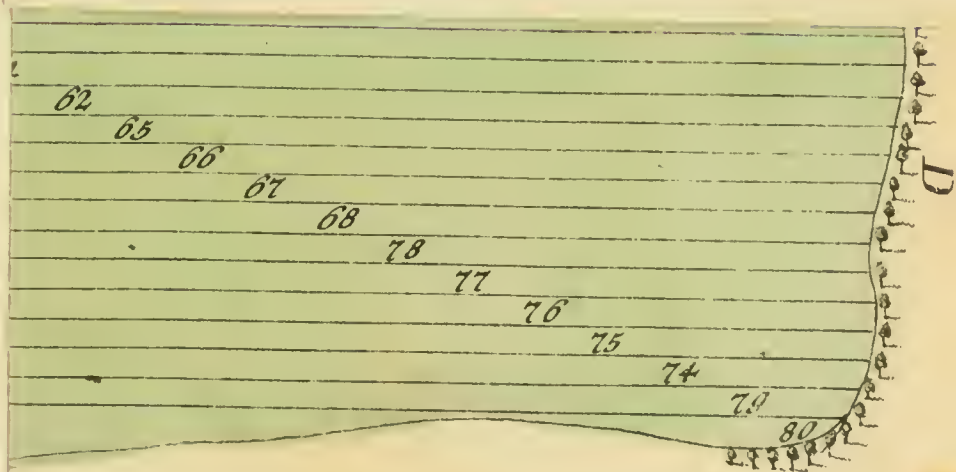 62
65
66
67
68
78
77
76
75
74
79
80
D